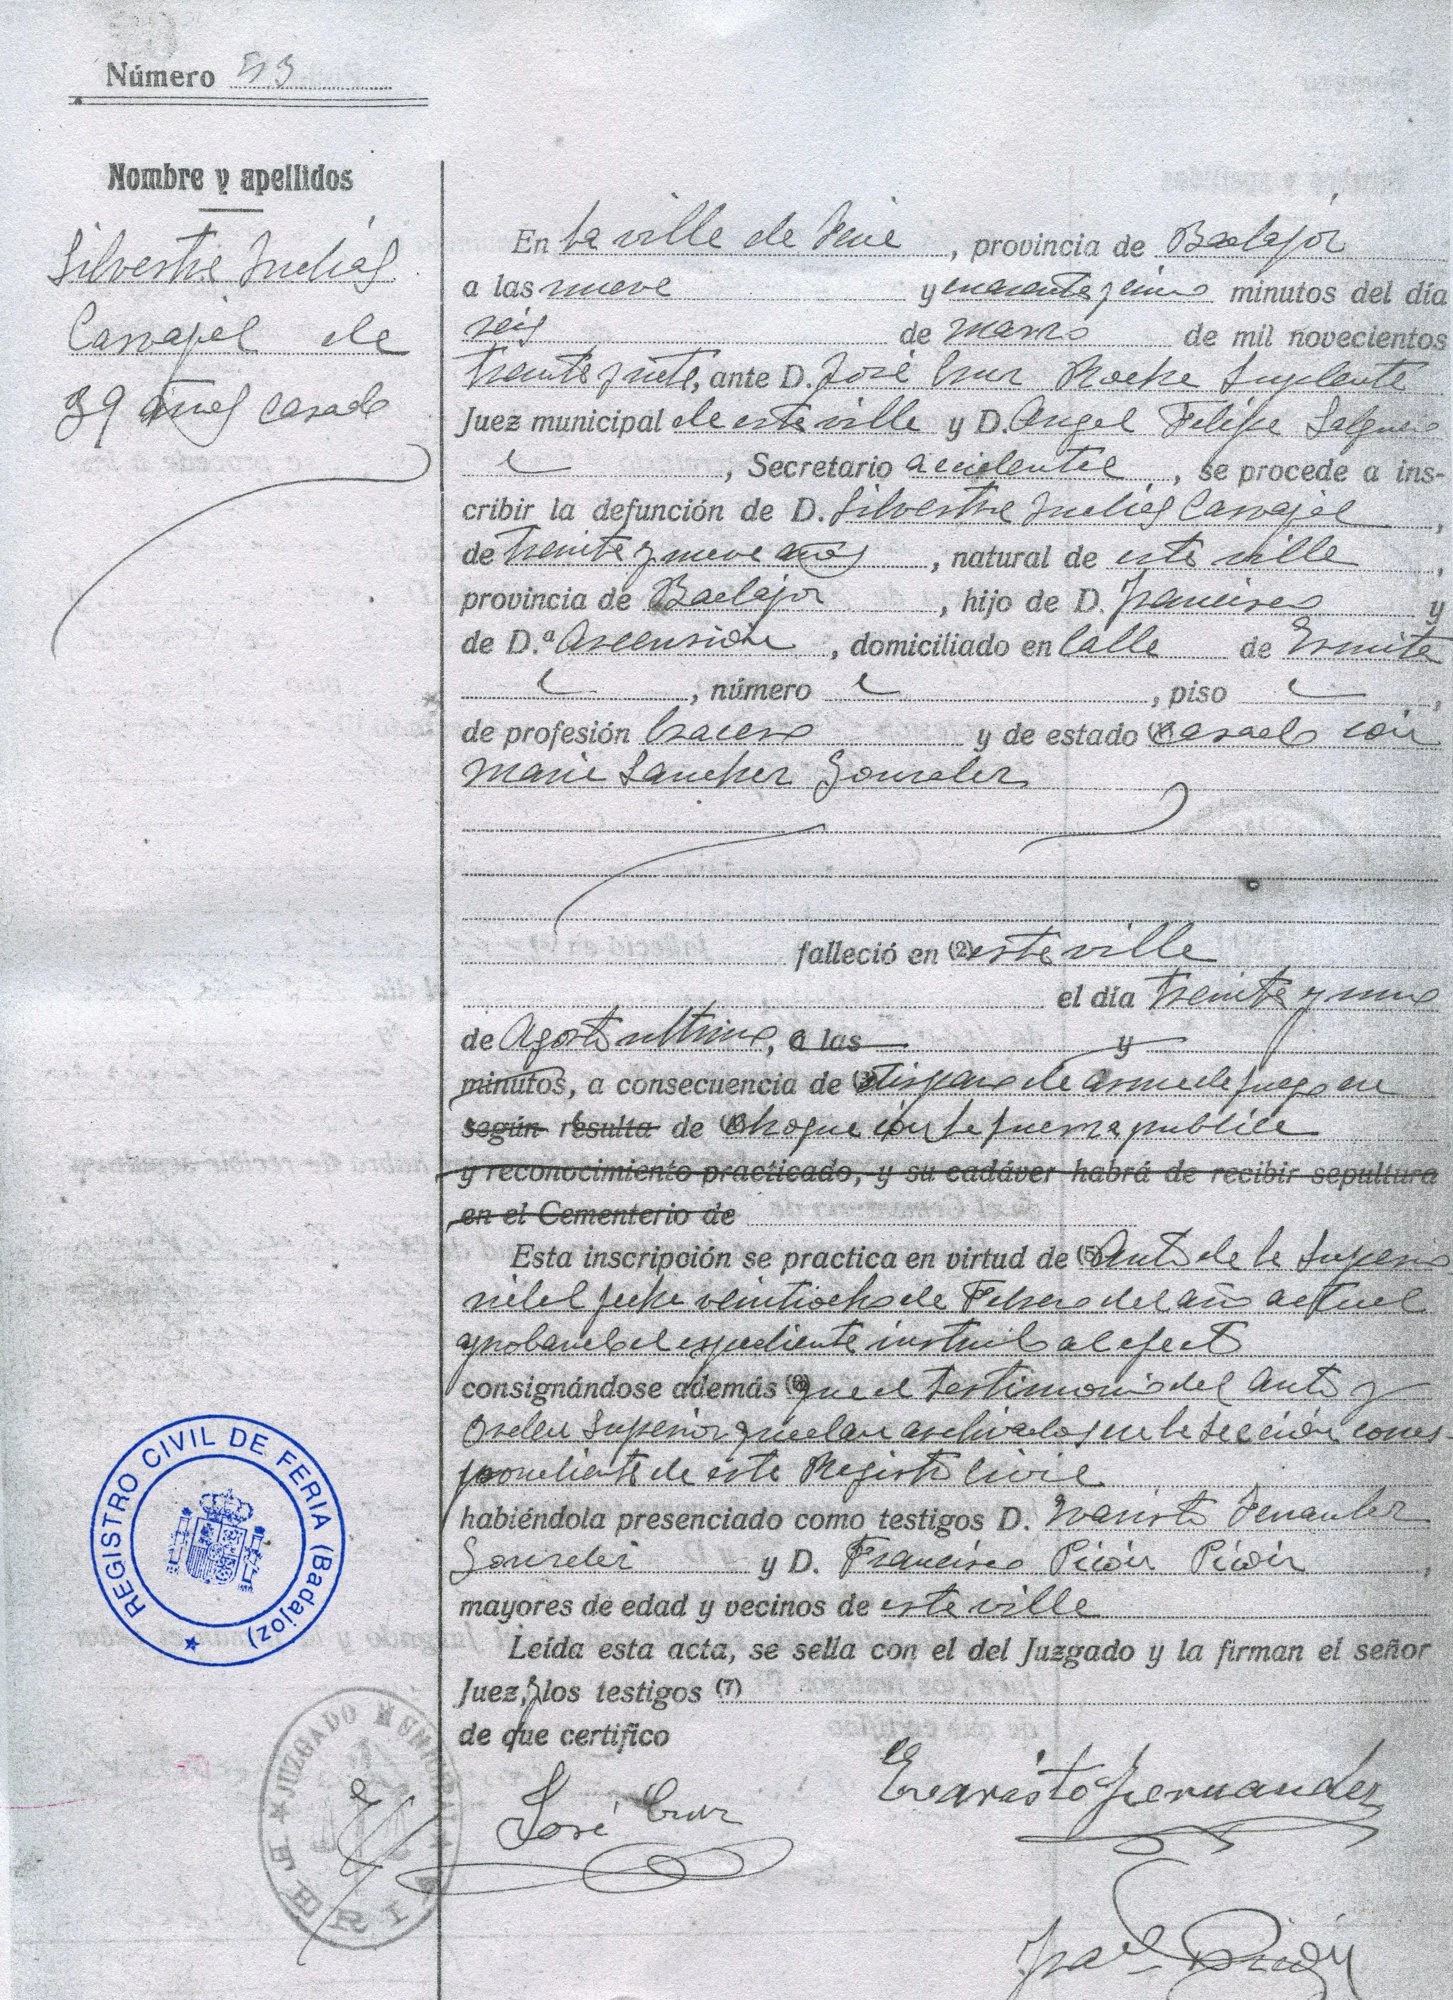 Número 53
Nombre y apellidos
Silvestre Indias
Carvajal de
39 años casado
En la villa de Feria, provincia de Badajoz
a las nueve y cuarenta y cinco minutos del día
seis de marzo de mil novecientos
treinta y siete, ante D. José Cruz Rocha Suplente
Juez municipal de esta villa y D. Angel Felipe Salguero
, Secretario accidental, se procede a ins-
cribir la defunción de D. Silvestre Indias Carvajal,
de treinta y nueve años, natural de esta villa,
provincia de Badajoz, hijo de D. Francisco y
de D.ª Ascensión, domiciliado en Calle de Ermita
, número , piso ,
de profesión bracero y de estado (1) casado con
Maria Sanchez Gonzalez
falleció en (2) esta villa
el día treinta y uno
de Agosto ultimo, a las y
minutos, a consecuencia de (3) disparo de arma de fuego en
según resulta de (4) choque con la fuerza publica
y reconocimiento practicado, y su cadáver habrá de recibir sepultura
en el Cementerio de
Esta inscripción se practica en virtud de (5) Auto de la Superio
ridad fecha veintiocho de Febrero del año actual
aprobando el expediente instruido al efecto
consignándose además (6) que el testimonio del Auto y
Orden Superior quedan archivados en la Sección corres-
pondiente de este Registro Civil
habiéndola presenciado como testigos D. Evaristo Fernandez
Gonzalez y D. Francisco Picón Picón,
mayores de edad y vecinos de esta villa
Leída esta acta, se sella con el del Juzgado y la firman el señor
Juez, y los testigos (7)
de que certifico
REGISTRO CIVIL DE FERIA (Badajoz)
JUZGADO MUNICIPAL
FERIA
José Cruz
Evaristo Fernandez
Fraco Picón